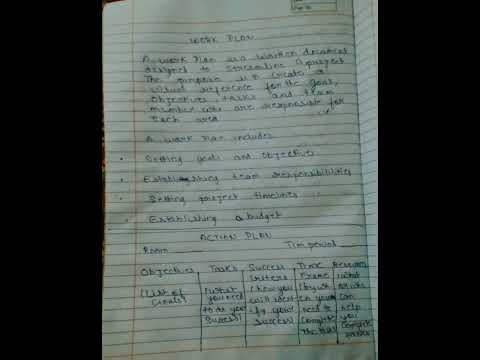 WORK PLAN
A work plan is a written document
designed to streamline a project
The purpose is to create a
visual reference for the goal,
objectives, tasks and team
member who are responsible for
each area
A work plan includes
Setting goals and objective
Establishing team responsibilities
Setting project timelines
Establishing a budget
ACTION PLAN
Room Time period
Objectives Tasks Success Time Resources
criteria Frame (what
(List of (what (how you (by when
goals) you need will iden- you can
to do you tify your need to help
success) complete you
the task) complete
tasks)